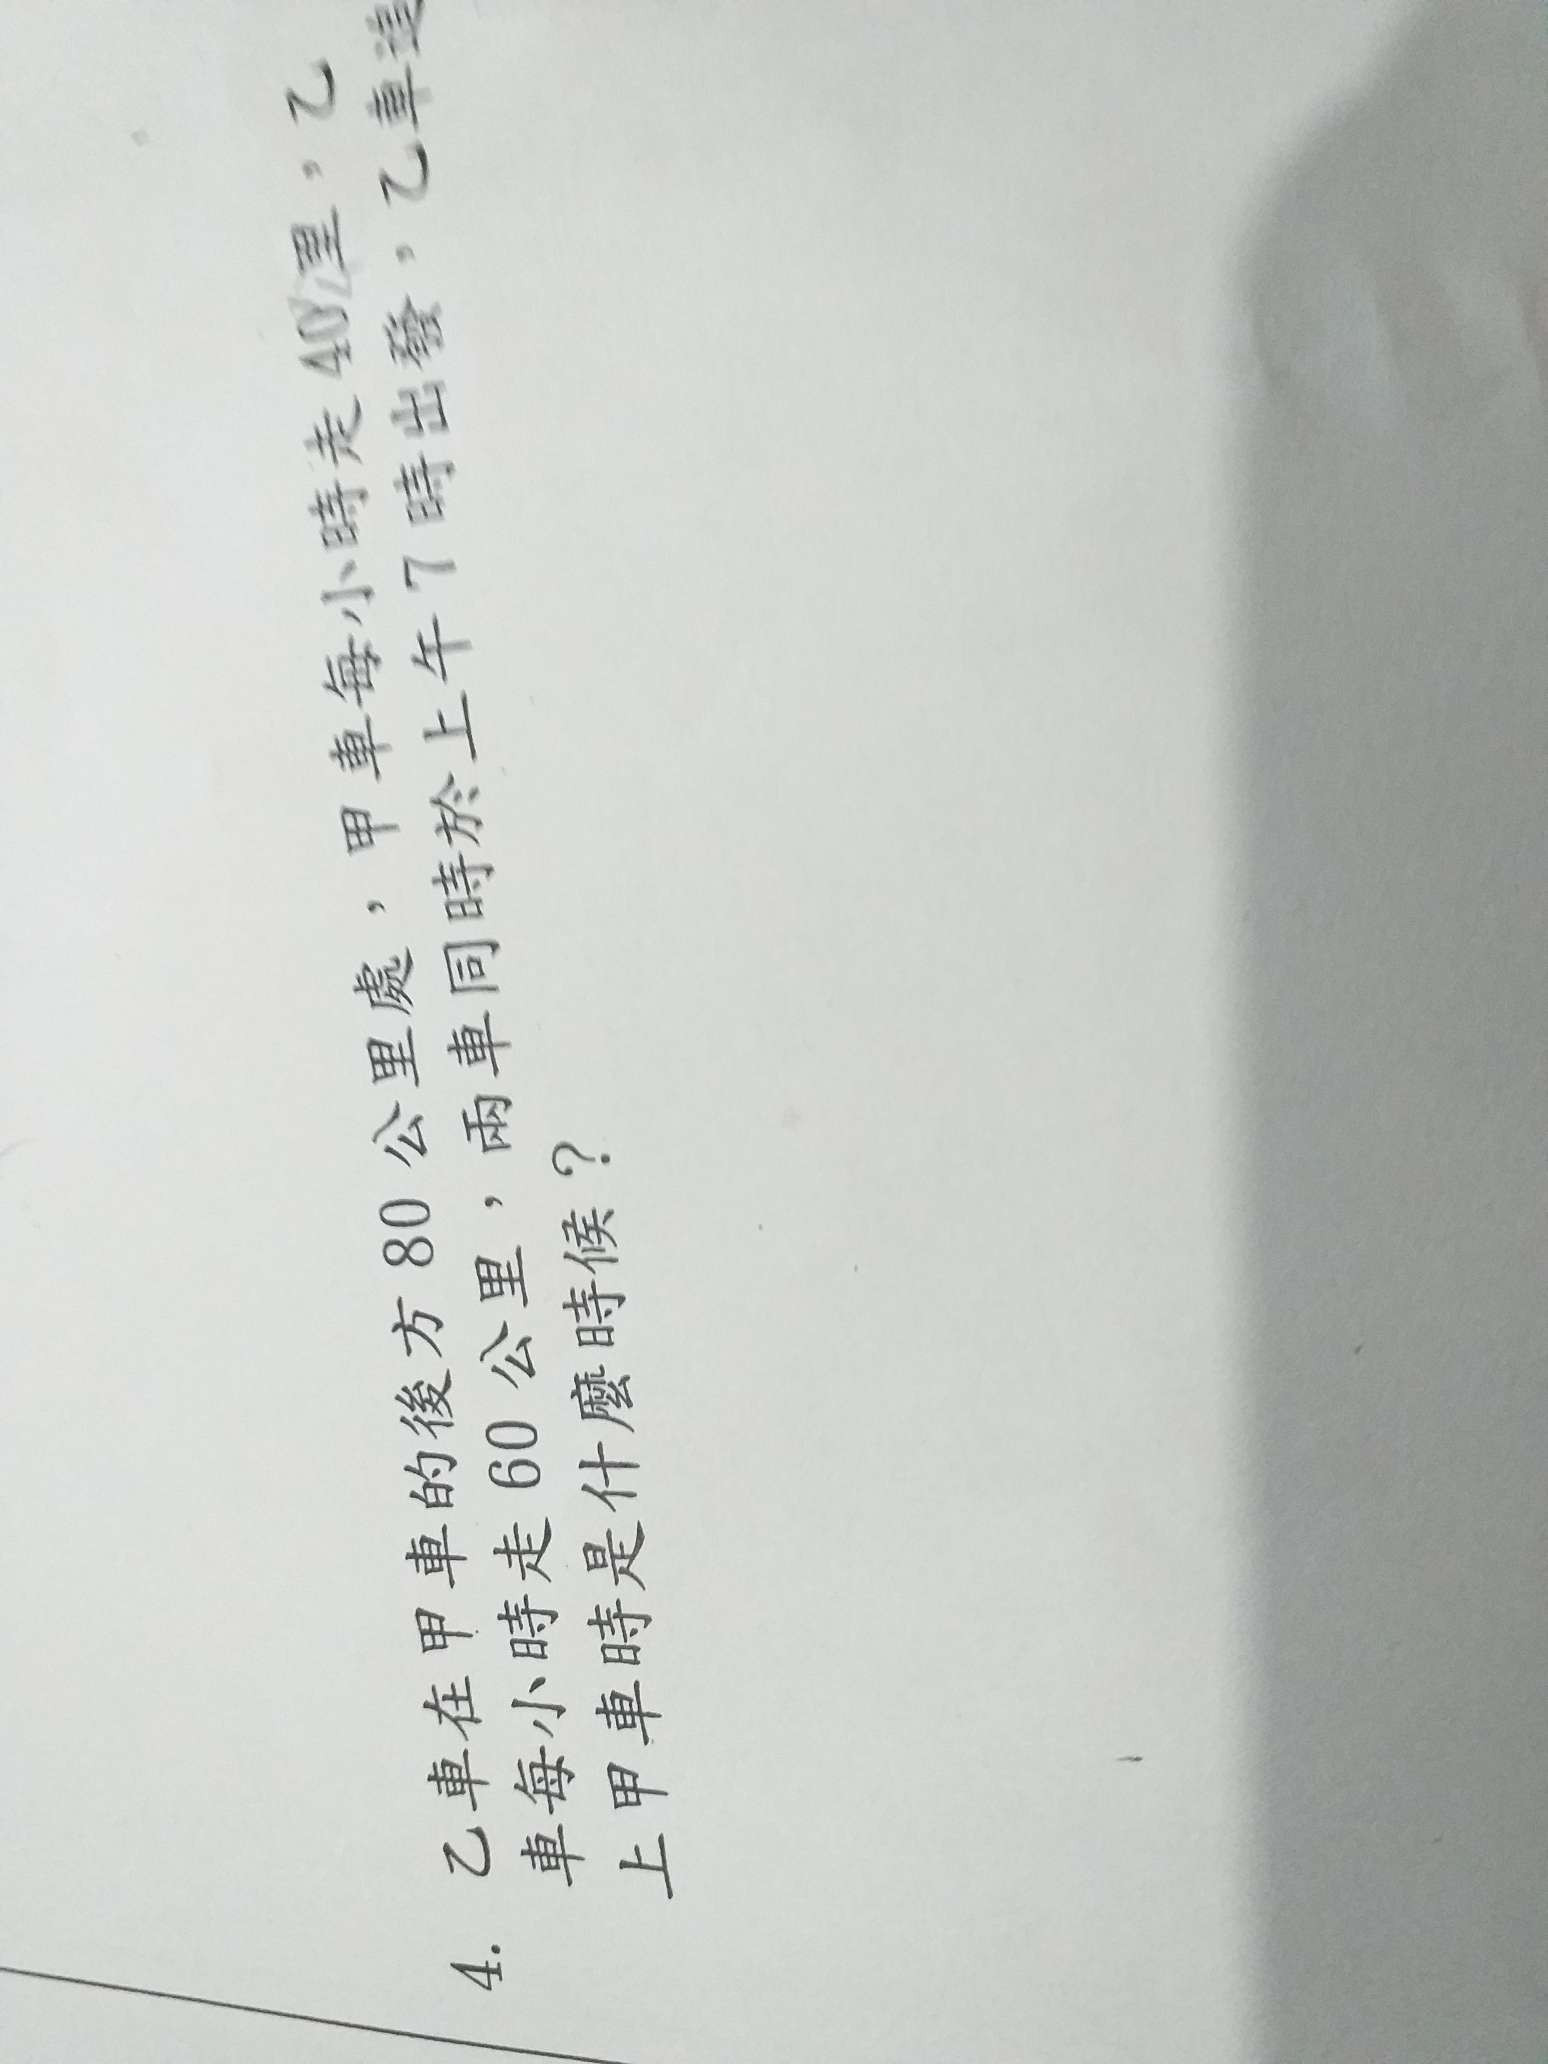 4. 乙車在甲車的後方 80 公里處，甲車每小時走 40公里，乙
車每小時走 60 公里，兩車同時於上午 7 時出發，乙車追
上甲車時是什麼時候？